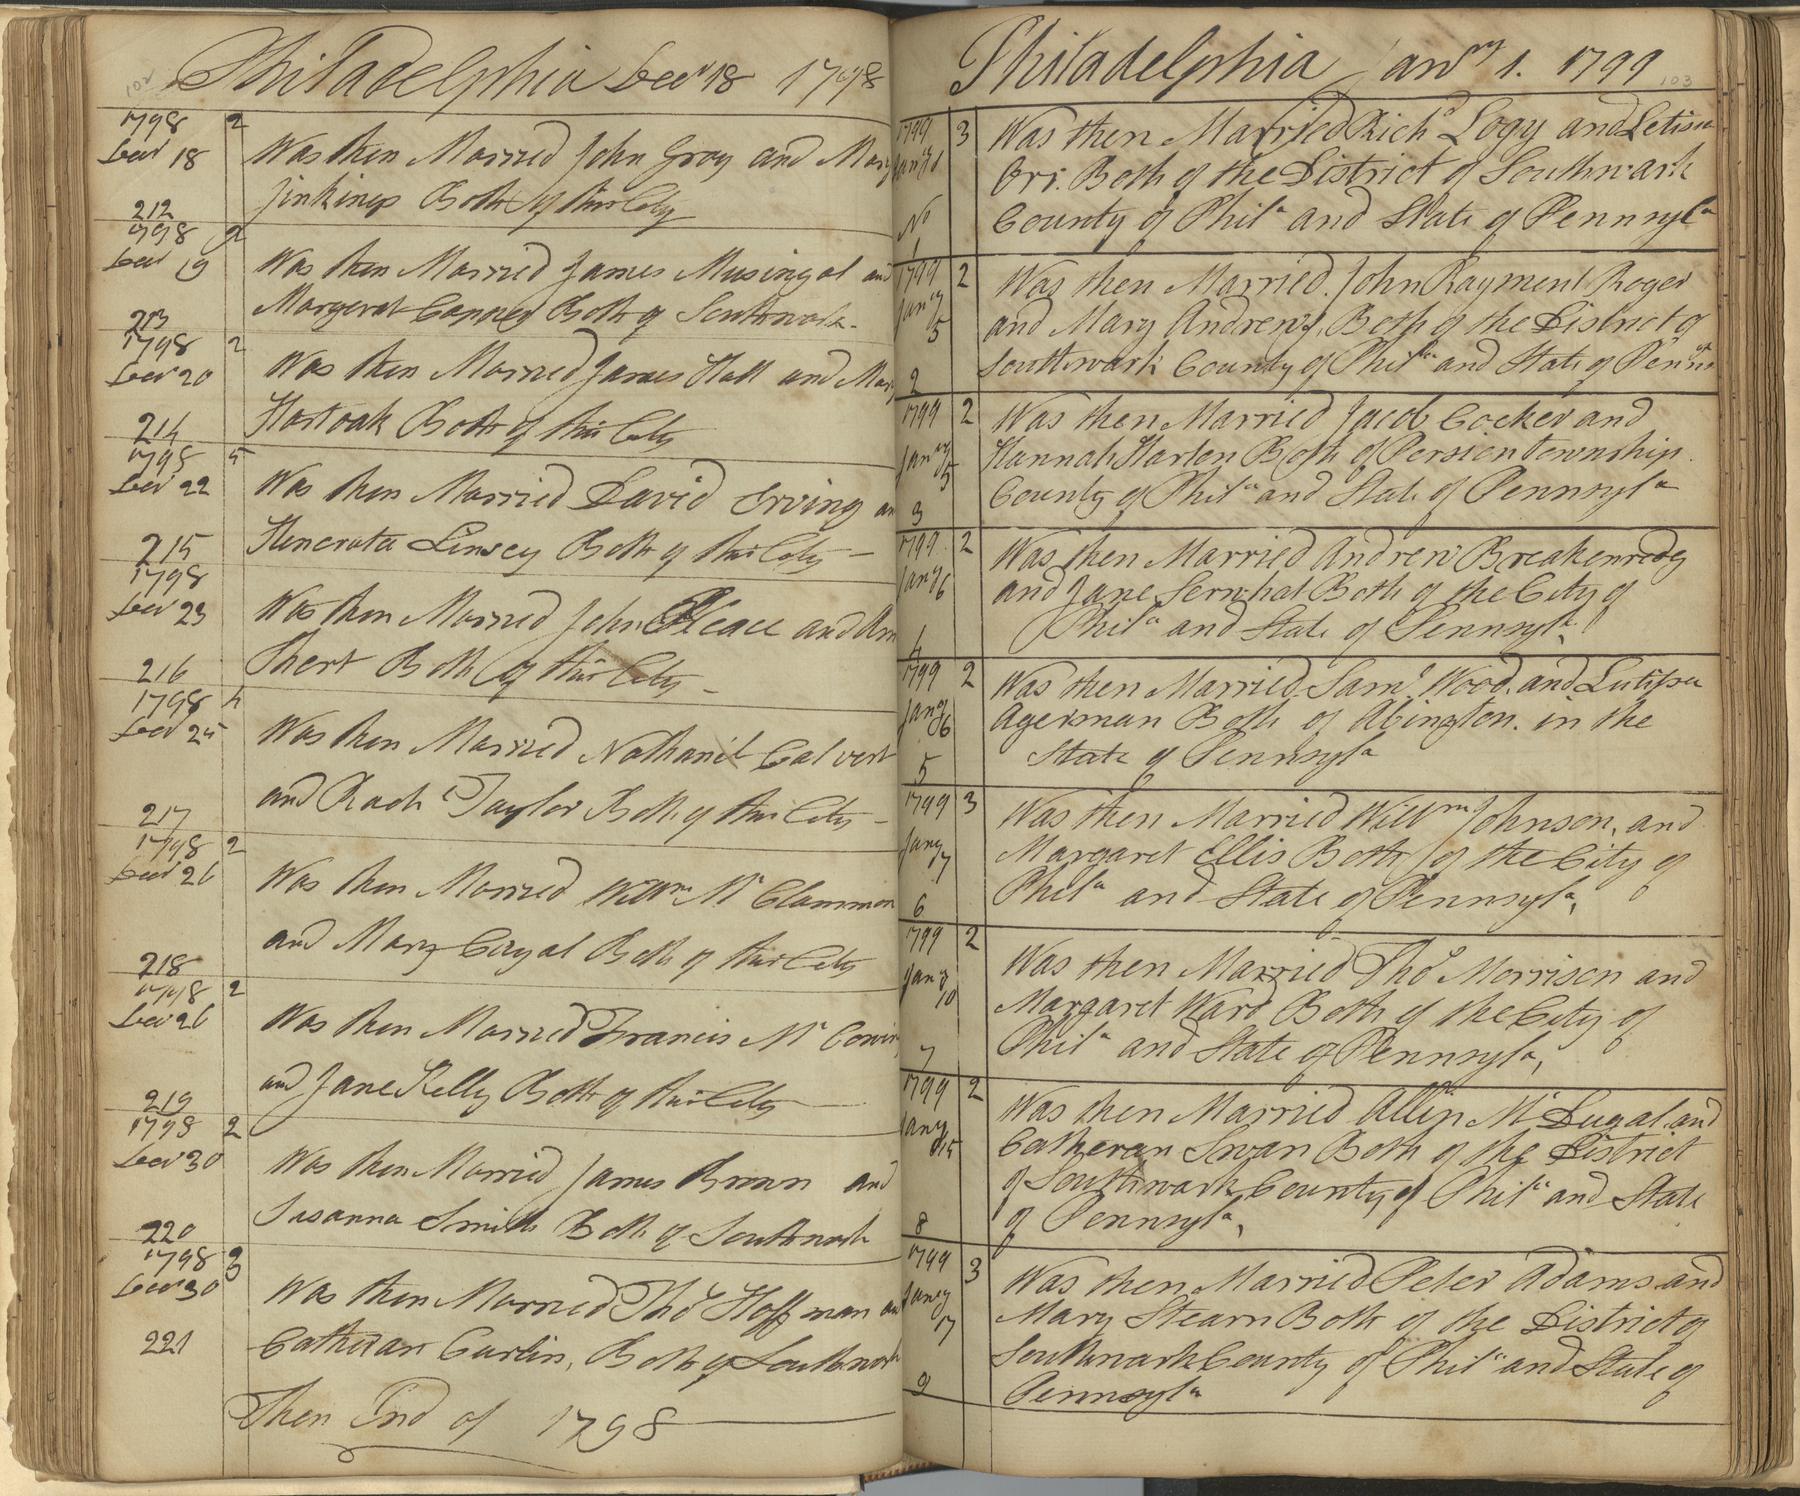 102
Philadelphia Decr 18 1798
1798 2
Decr 18 Was then Married John Gray and Mary
Jinkings Both of this City
212
1798 2
Decr 19 Was then Married James Musingal and
Margerat Conner Both of Southwark.
213
1798 2
Decr 20 Was then Married James Hall and Mary
Hartoak Both of this City
214
1798 5
Decr 22 Was then Married David Irving an
Henerata Linsey Both of this City
215
1798
Decr 23 Was then Married John Pleace and Ann
Shert Both of this City
216
1798 4
Decr 25 Was then Married Nathanil Calvert
and Rachl Taylor Both of this City
217
1798 2
Decr 26 Was then Married Willm Mc Clammon
and Mary Both of this City
218
1798 2
Decr 26 Was then Married Francis Mc
and Jane Kelly Both of this City
219
1798 2
Decr 30 Was then Married James Brown and
Susanna Smith Both of Southwark
220
1798 3
Decr 30 Was then Married Thos Hoffman an
Catheran Curlin, Both of Southwark
221
Then End of 1798
Philadelphia Janry 1. 1799 103
1799 3 Was then Married Richd Logy and Letisia
Jany 1 Ori. Both of the District of Southwark
No County of Phila and State of Pennsyla
1
1799 2 Was then Married John Rayment Roger
Jany 5 and Mary Andrews, Both of the District of
Southwark County of Phila and State of Penns
2
1799 2 Was then Married Jacob Cocker and
Jany 5 Hannah Harton Both of Persien township
3 County of Phila and State of Pennsyla
1799 2 Was then Married Andrew Breakenredg
Jany 6 and Jane Both of the City of
4 Phila and State of Pennsyla
1799 2 Was then Married Saml Wood and Lutissa
Jany 6 Agerman Both of Abington in the
5 State of Pennsyla
1799 3 Was then Married Willm Johnson, and
Jany 7 Margaret Ellis Both of the City of
6 Phila and State of Pennsyla,
1799 2 Was then Married Thos Morrison and
Jany 10 Margaret Ward Both of the City of
7 Phila and State of Pennsyla,
1799 2 Was then Married Allin Mc Dugal and
Jany 15 Catheran Swan Both of the District
of Southwark County of Phila and State
8 of Pennsyla,
1799 3 Was then Married Peter Adams and
Jany 17 Mary Stearn Both of the District of
Southwark County of Phila and State of
9 Pennsyla